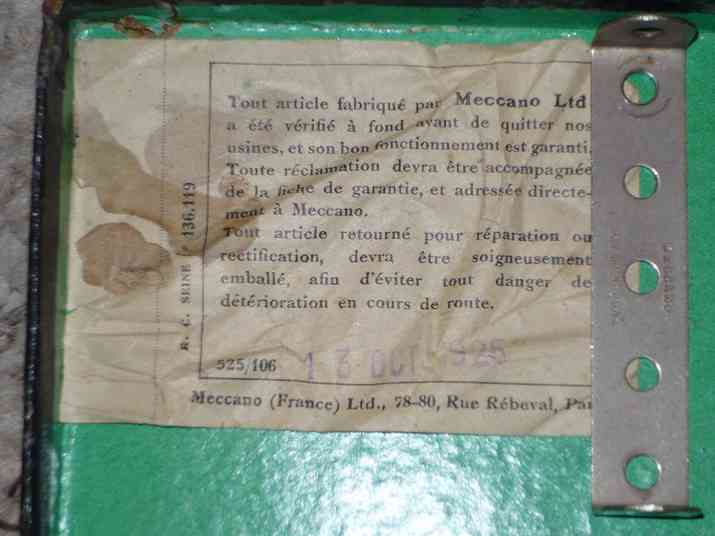 Tout article fabriqué par Meccano Ltd
a été vérifié à fond avant de quitter nos
usines, et son bon fonctionnement est garanti.
Toute réclamation devra être accompagnée
de la fiche de garantie, et adressée directe-
ment à Meccano.
Tout article retourné pour réparation ou
rectification, devra être soigneusement
emballé, afin d'éviter tout danger de
détérioration en cours de route.
525/106 13 OCT 1926
Meccano (France) Ltd., 78-80, Rue Rébeval,
R. C. SEINE 136.119
MECCANO